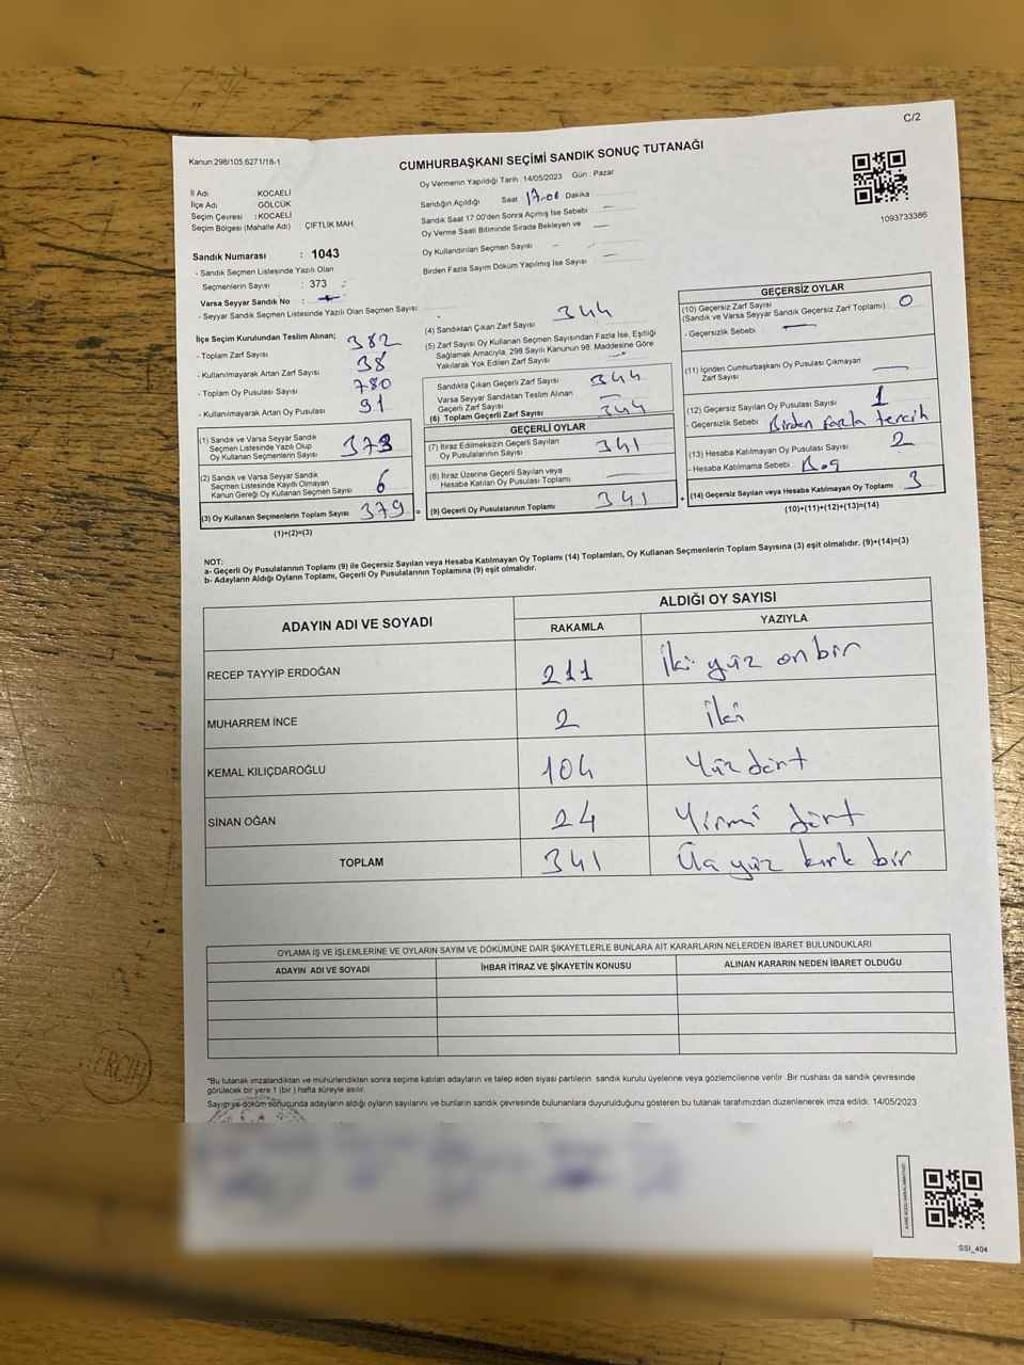 C/2
Kanun:298/105,6271/18-1
CUMHURBAŞKANI SEÇİMİ SANDIK SONUÇ TUTANAĞI
Oy Vermenin Yapıldığı Tarih :14/05/2023 Gün : Pazar
İl Adı KOCAELİ
İlçe Adı GÖLCÜK
Seçim Çevresi : KOCAELİ
Seçim Bölgesi (Mahalle Adı) ÇİFTLİK MAH
Sandığın Açıldığı Saat Dakika
Sandık Saat 17.00'den Sonra Açmış İse Sebebi —
Oy Verme Saati Bitiminde Sırada Bekleyen ve —
Oy Kullandırılan Seçmen Sayısı
Birden Fazla Sayım Döküm Yapılmış İse Sayısı —
1093733386
Sandık Numarası : 1043
- Sandık Seçmen Listesinde Yazılı Olan
Seçmenlerin Sayısı : 373
Varsa Seyyar Sandık No :
- Seyyar Sandık Seçmen Listesinde Yazılı Olan Seçmen Sayısı
İlçe Seçim Kurulundan Teslim Alınan;
- Toplam Zarf Sayısı 382
- Kullanılmayarak Artan Zarf Sayısı 38
- Toplam Oy Pusulası Sayısı 780
- Kullanılmayarak Artan Oy Pusulası 91
(1) Sandık ve Varsa Seyyar Sandık
Seçmen Listesinde Yazılı Olup
Oy Kullanan Seçmenlerin Sayısı 373
(2) Sandık ve Varsa Seyyar Sandık
Seçmen Listesinde Kayıtlı Olmayan
Kanun Gereği Oy Kullanan Seçmen Sayısı 6
(3) Oy Kullanan Seçmenlerin Toplam Sayısı 379
(1)+(2)=(3)
(4) Sandıktan Çıkan Zarf Sayısı 344
(5) Zarf Sayısı Oy Kullanan Seçmen Sayısından Fazla İse, Eşitliği
Sağlamak Amacıyla, 298 Sayılı Kanunun 98. Maddesine Göre
Yakılarak Yok Edilen Zarf Sayısı —
Sandıkta Çıkan Geçerli Zarf Sayısı 344
Varsa Seyyar Sandıktan Teslim Alınan
Geçerli Zarf Sayısı —
(6) Toplam Geçerli Zarf Sayısı 344
GEÇERLİ OYLAR
(7) İtiraz Edilmeksizin Geçerli Sayılan
Oy Pusulalarının Sayısı 341
(8) İtiraz Üzerine Geçerli Sayılan veya
Hesaba Katılan Oy Pusulası Toplamı —
(9) Geçerli Oy Pusulalarının Toplamı 341
GEÇERSİZ OYLAR
(10) Geçersiz Zarf Sayısı
(Sandık ve Varsa Seyyar Sandık Geçersiz Zarf Toplamı) : 0
- Geçersizlik Sebebi —
(11) İçinden Cumhurbaşkanı Oy Pusulası Çıkmayan
Zarf Sayısı —
(12) Geçersiz Sayılan Oy Pusulası Sayısı 1
- Geçersizlik Sebebi Birden fazla tercih
(13) Hesaba Katılmayan Oy Pusulası Sayısı 2
- Hesaba Katılmama Sebebi : Boş
(14) Geçersiz Sayılan veya Hesaba Katılmayan Oy Toplamı 3
(10)+(11)+(12)+(13)=(14)
NOT:
a- Geçerli Oy Pusulalarının Toplamı (9) ile Geçersiz Sayılan veya Hesaba Katılmayan Oy Toplamı (14) Toplamları, Oy Kullanan Seçmenlerin Toplam Sayısına (3) eşit olmalıdır. (9)+(14)=(3)
b- Adayların Aldığı Oyların Toplamı, Geçerli Oy Pusulalarının Toplamına (9) eşit olmalıdır.
ADAYIN ADI VE SOYADI ALDIĞI OY SAYISI
RAKAMLA YAZIYLA
RECEP TAYYİP ERDOĞAN 211 İki yüz onbir
MUHARREM İNCE 2 İki
KEMAL KILIÇDAROĞLU 104 Yüz dört
SİNAN OĞAN 24 Yirmi dört
TOPLAM 341 Üç yüz kırk bir
OYLAMA İŞ VE İŞLEMLERİNE VE OYLARIN SAYIM VE DÖKÜMÜNE DAİR ŞİKAYETLERLE BUNLARA AİT KARARLARIN NELERDEN İBARET BULUNDUKLARI
ADAYIN ADI VE SOYADI İHBAR İTİRAZ VE ŞİKAYETİN KONUSU ALINAN KARARIN NEDEN İBARET OLDUĞU
"Bu tutanak imzalandıktan ve mühürlendikten sonra seçime katılan adayların ve talep eden siyasi partilerin sandık kurulu üyelerine veya gözlemcilerine verilir. Bir nüshası da sandık çevresinde
görülecek bir yere 1 (bir ) hafta süreyle asılır.
Sayım ve döküm sonucunda adayların aldığı oyların sayılarını ve bunların sandık çevresinde bulunanlara duyurulduğunu gösteren bu tutanak tarafımızdan düzenlenerek imza edildi. 14/05/2023
SSI_404